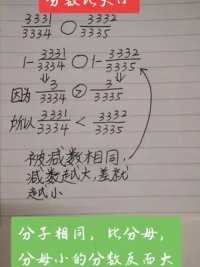 分数比大小
3331/3334 ○ 3332/3335
1-3331/3334 ○ 1-3332/3335
⇓ ⇓
因为 3/3334 > 3/3335
所以 3331/3334 < 3332/3335
被减数相同,
减数越大,差就
越小
分子相同,比分母,
分母小的分数反而大